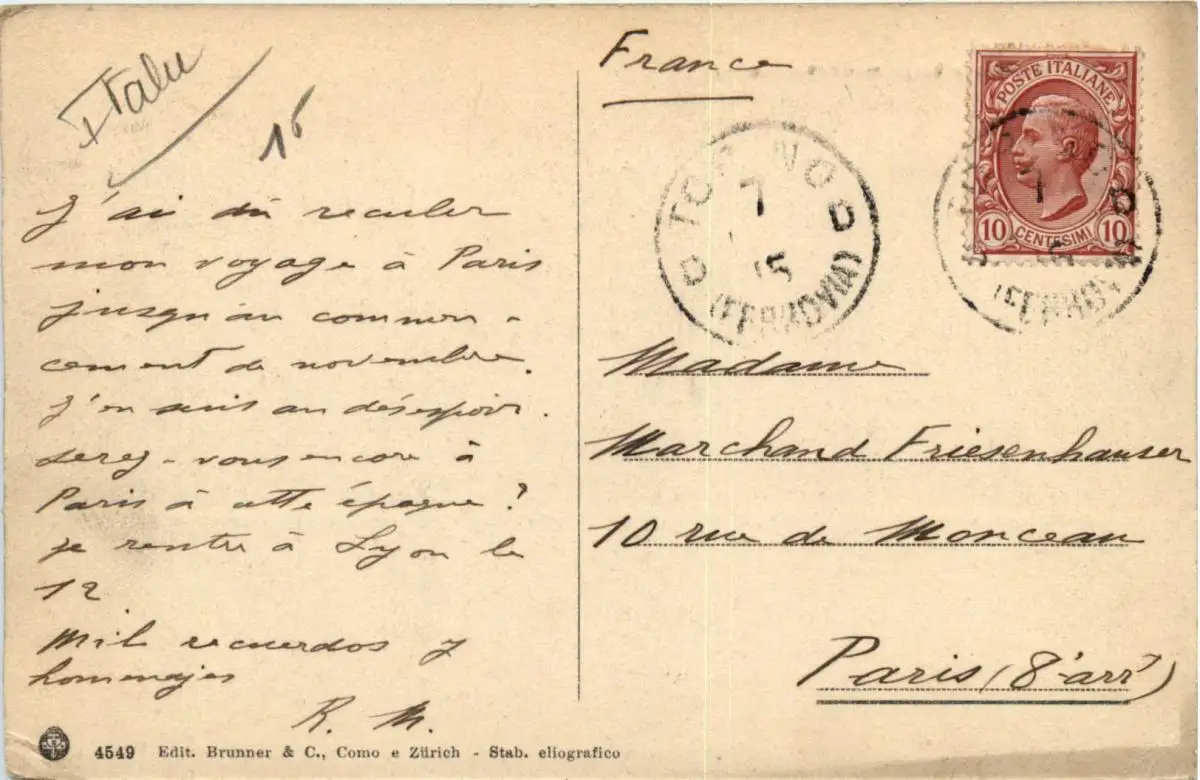 Italie
15
J'ai dû reculer
mon voyage à Paris
jusqu'au commen-
cement de novembre.
J'en suis au désespoir.
Serez-vous encore à
Paris à cette époque?
je rentre à Lyon le
12
Mil recuerdos y
homenajes
R. M.
4549 Edit. Brunner & C., Como e Zürich - Stab. eliografico
France
POSTE ITALIANE
10 CENTESIMI 10
TORINO
7
15
(FERROVIA)
Madame
Marchand Friesenhauser
10 rue de Monceau
Paris (8'arrt)